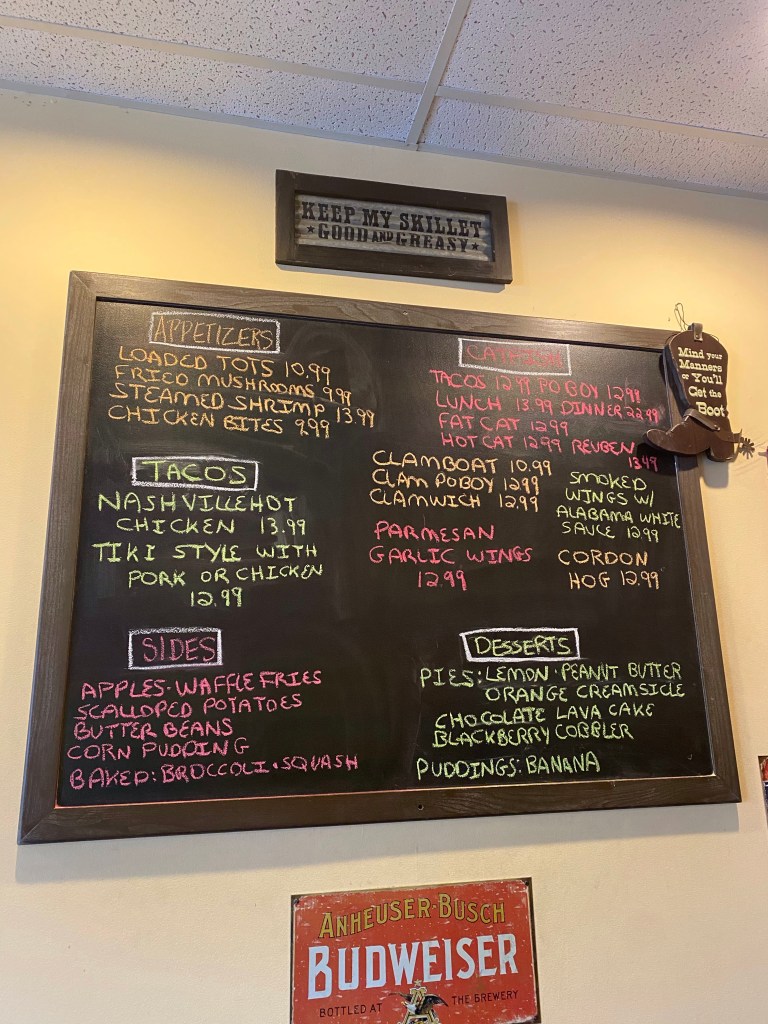 KEEP MY SKILLET
★GOOD AND GREASY★
APPETIZERS
LOADED TOTS 10.99
FRIED MUSHROOMS 9.99
STEAMED SHRIMP 13.99
CHICKEN BITES 9.99
TACOS
NASHVILLE HOT
CHICKEN 13.99
TIKI STYLE WITH
PORK OR CHICKEN
12.99
SIDES
APPLES · WAFFLE FRIES
SCALLOPED POTATOES
BUTTER BEANS
CORN PUDDING
BAKED: BROCCOLI · SQUASH
CATFISH
TACOS 12.99 PO BOY 12.99
LUNCH 13.99 DINNER 22.99
FAT CAT 12.99
HOT CAT 12.99 REUBEN
13.49
CLAMBOAT 10.99
CLAM POBOY 12.99
CLAMWICH 12.99
PARMESAN
GARLIC WINGS
12.99
SMOKED
WINGS W/
ALABAMA WHITE
SAUCE 12.99
CORDON
HOG 12.99
DESSERTS
PIES: LEMON · PEANUT BUTTER
ORANGE CREAMSICLE
CHOCOLATE LAVA CAKE
BLACKBERRY COBBLER
PUDDINGS: BANANA
Mind your
Manners
or You'll
Get the
Boot
ANHEUSER-BUSCH
BUDWEISER
BOTTLED AT THE BREWERY